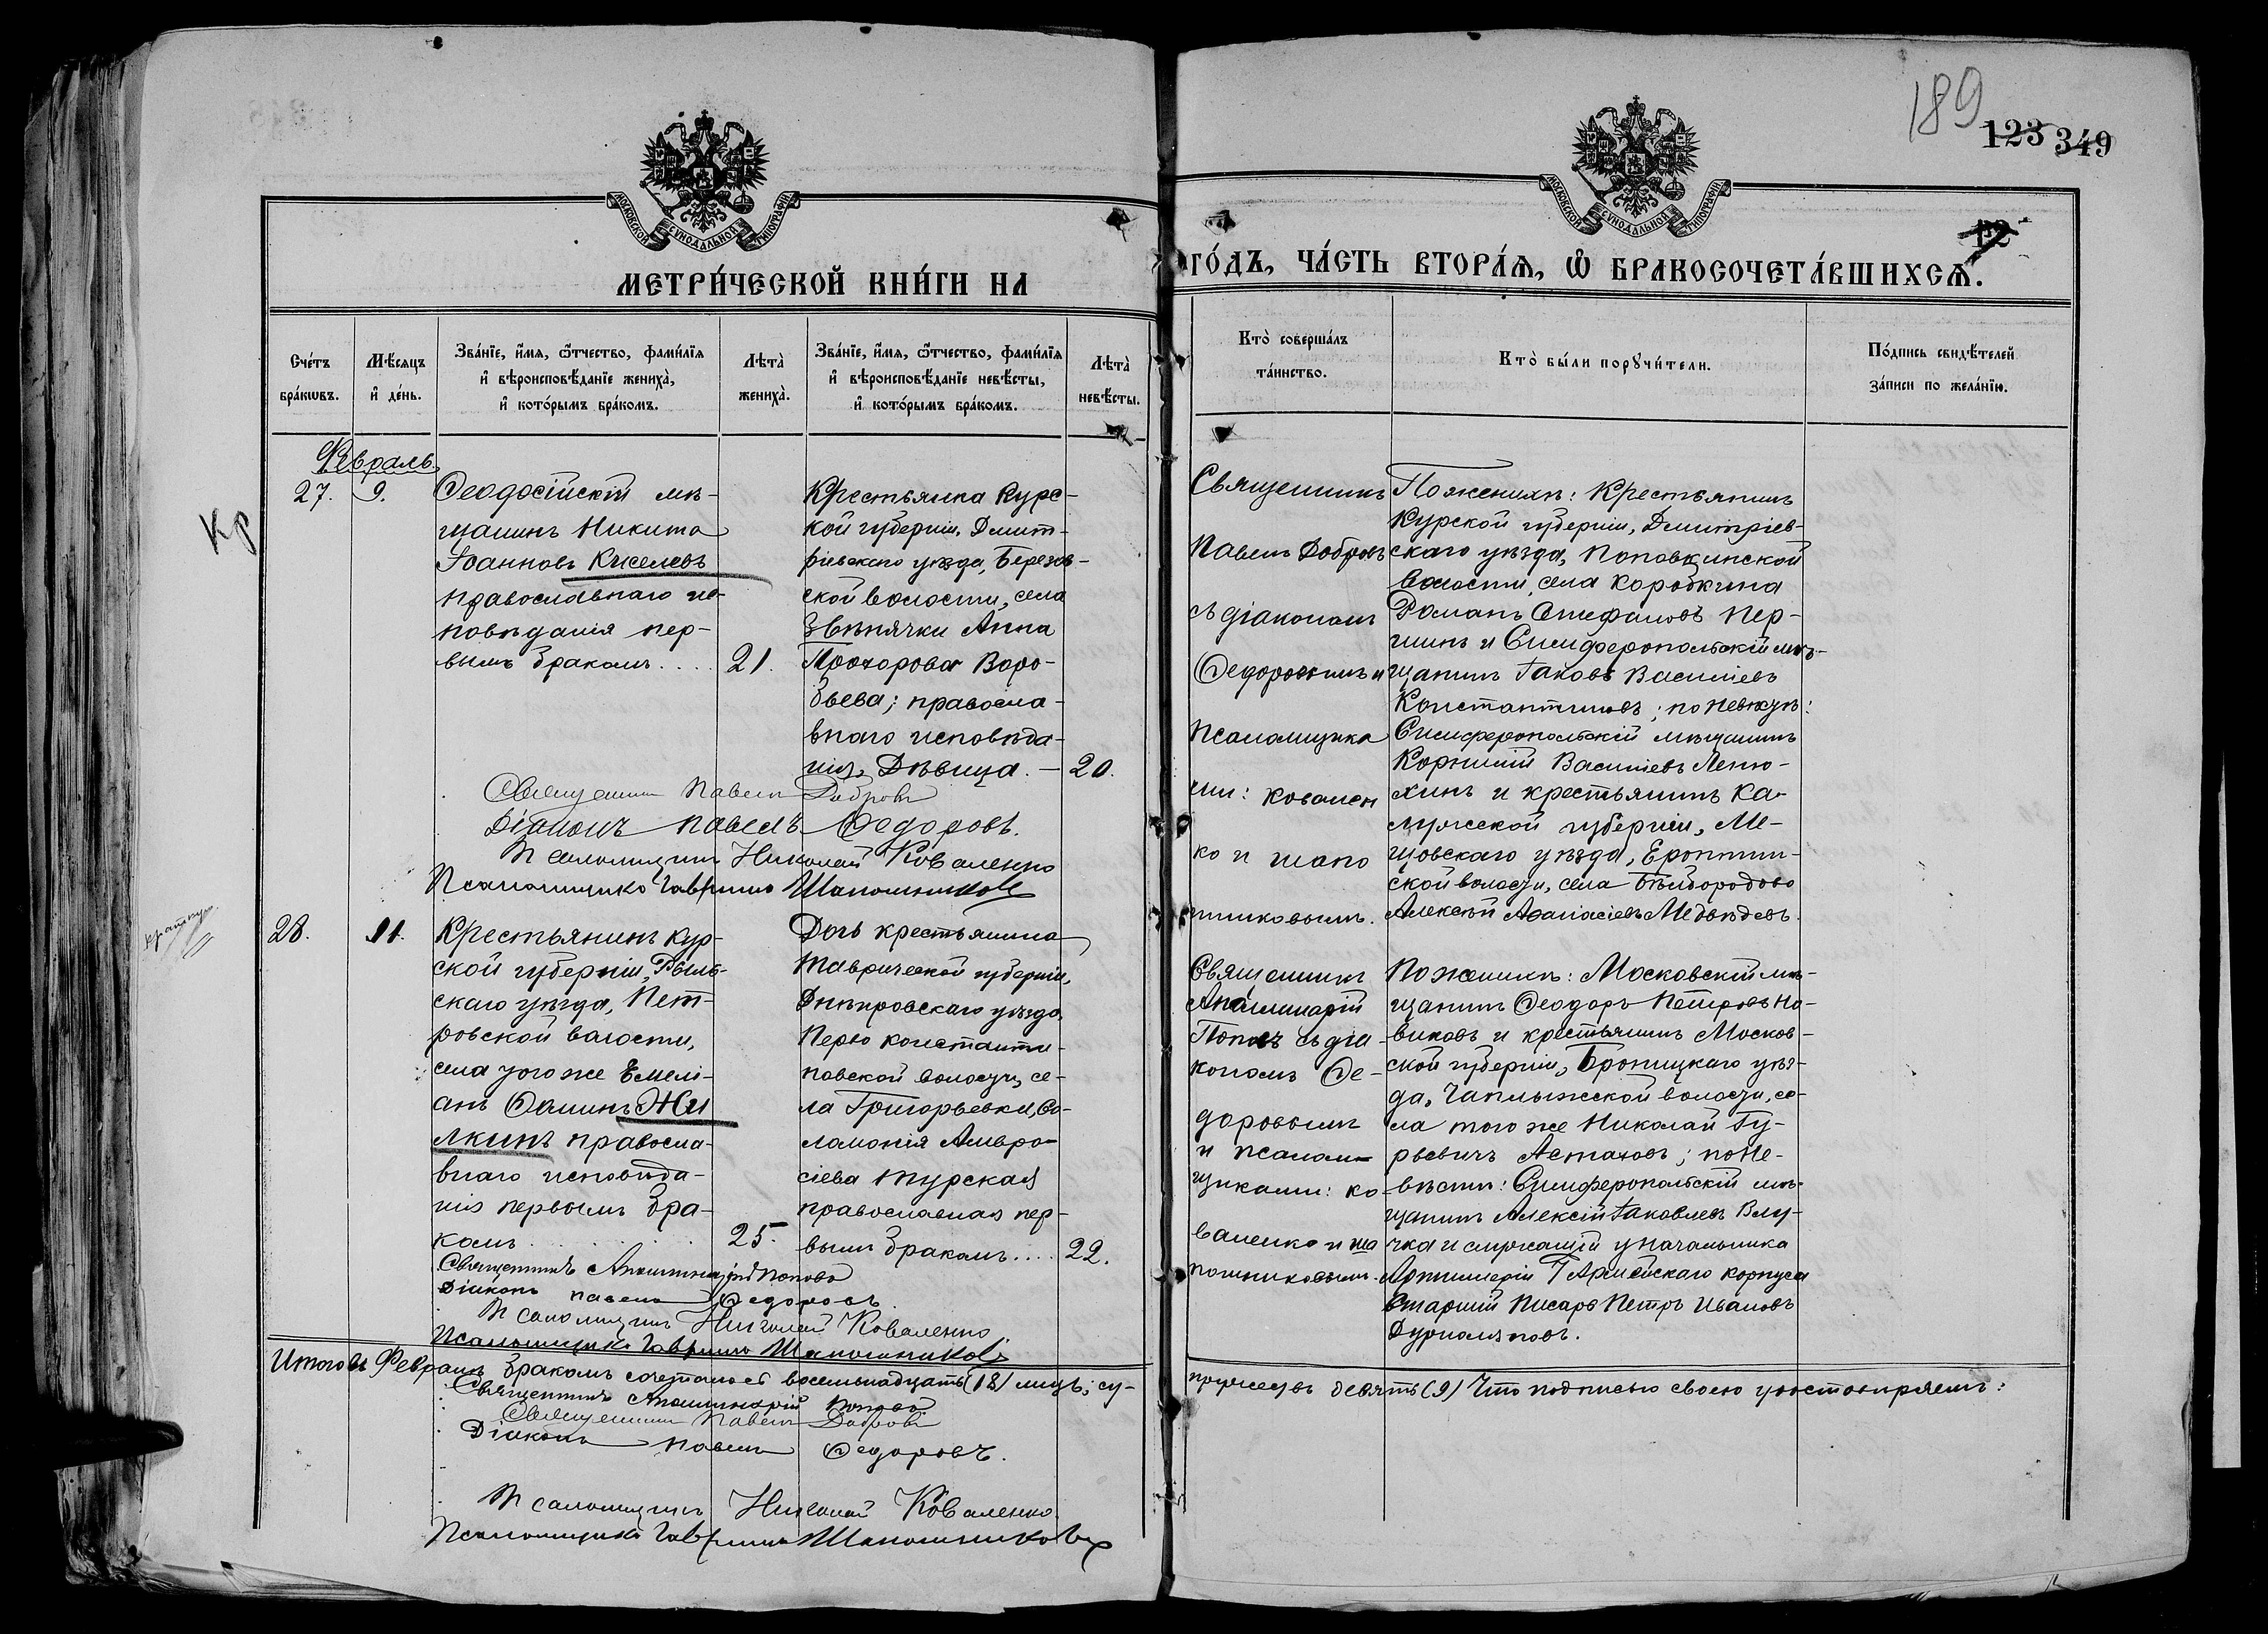 189
123 349
112
МОСКОВСКОЙ СѴНОДАЛЬНОЙ ТИПОГРАФІИ
МОСКОВСКОЙ СѴНОДАЛЬНОЙ ТИПОГРАФІИ
МЕТРИ́ЧЕСКОЙ КНИ́ГИ НА
ГО́ДЪ, ЧА́СТЬ ВТОРА́Ѧ, Ѽ БРАКОСОЧЕТА́ВШИХСѦ.
Сче́тъ бра́кѡвъ.
Мѣ́сѧцъ и҆ де́нь.
Зва́нїе, и҆́мѧ, ѿтчество, фами́лїѧ и҆ вѣроисповѣ́данїе жениха̀, и҆ кото́рымъ бра́комъ.
Лѣта̀ жениха̀.
Зва́нїе, и҆́мѧ, ѿтчество, фами́лїѧ и҆ вѣроисповѣ́данїе невѣ́сты, и҆ кото́рымъ бра́комъ.
Лѣта̀ невѣ́сты.
Кто̀ соверша́лъ та́инство.
Кто̀ бы́ли порꙋчи́тели.
По́дпись свидѣ́телей за́писи по жела́нїю.
Февраль
Кр
27.
9.
Ѳеодосійскій мѣ-
щанинъ Никита
Іоанновъ Киселевъ
православнаго ис-
повѣданія пер-
вымъ бракомъ....
21.
Крестьянка Курс-
кой губерніи, Дмит-
ріевскаго уѣзда, Березов-
ской волости, села
Звѣнячки Анна
Прохорова Воро-
бьева; правосла-
внаго исповѣда-
нія, Дѣвица. —
20.
Священникъ
Павелъ Добровъ
съ діакономъ
Ѳедоровымъ и
Псаломщика
ми: Ковален
ко и Шапо
шниковымъ.
По женихѣ: Крестьянинъ
Курской губерніи, Дмитріев-
скаго уѣзда, Поповкинской
волости, села Коробкина
Романъ Стефановъ Пер-
шинъ и Симферопольскій мѣ-
щанинъ Іаковъ Василіевъ
Константиновъ; по невѣстѣ:
Симферопольскій мѣщанинъ
Корнилій Василіевъ Леню-
хинъ и крестьянинъ Ка-
лужской губерніи, Ме-
щовскаго уѣзда,
ской волости, села
Алексѣй Аѳанасіевъ Медвѣдевъ.
Священникъ Павелъ Добровъ
Діаконъ Павелъ Ѳедоровъ.
Псаломщикъ Николай Коваленко
Псаломщикъ Гавріилъ Шапошниковъ
28.
11.
Крестьянинъ Кур-
ской губерніи, Рыль-
скаго уѣзда, Пет-
ровской волости,
села того же Емелі-
анъ Ѳоминъ Жи
лкинъ правосла-
внаго исповѣда-
нія первымъ бра-
комъ
25.
Дочь крестьянина
Таврической губерніи,
Днѣпровскаго уѣзда,
Перво Константи-
новской волости, се-
ла Григорьевки, Со-
ломонія Амвро-
сіева Турская
православная пер-
вымъ бракомъ....
22.
Священникъ
Аполлинарій
Поповъ съ діа-
кономъ Ѳе-
доровымъ
и псалом-
щиками: Ко-
валенко и Ша
пошниковымъ.
По женихѣ: Московскій мѣ-
щанинъ Ѳеодоръ Петровъ Но-
виковъ и крестьянинъ Москов-
ской губерніи, Бронницкаго уѣз-
да, Чаплыжской волости, се-
ла того же Николай Гу-
рьевичъ Астаховъ; по не-
вѣстѣ: Симферопольскій мѣ-
щанинъ Алексій Іаковлевъ Влу-
чка и служащій у начальника
Артиллеріи 7 Армейскаго корпуса
Старшій Писарь Петръ Ивановъ
Священникъ Аполлинарій Поповъ
Діаконъ Павелъ Ѳедоровъ
Псаломщикъ Николай Коваленко.
Псаломщикъ Гавріилъ Шапошниковъ
Итого въ Февралѣ бракомъ сочеталось восемьнадцать (18) лицъ; су-
пружествъ девять (9) Что подписью своею удостовѣряемъ:
Священникъ Аполлинарій Поповъ
Священникъ Павелъ Добровъ
Діаконъ Павелъ Ѳедоровъ.
Псаломщикъ Николай Коваленко.
Псаломщикъ Гавріилъ Шапошниковъ